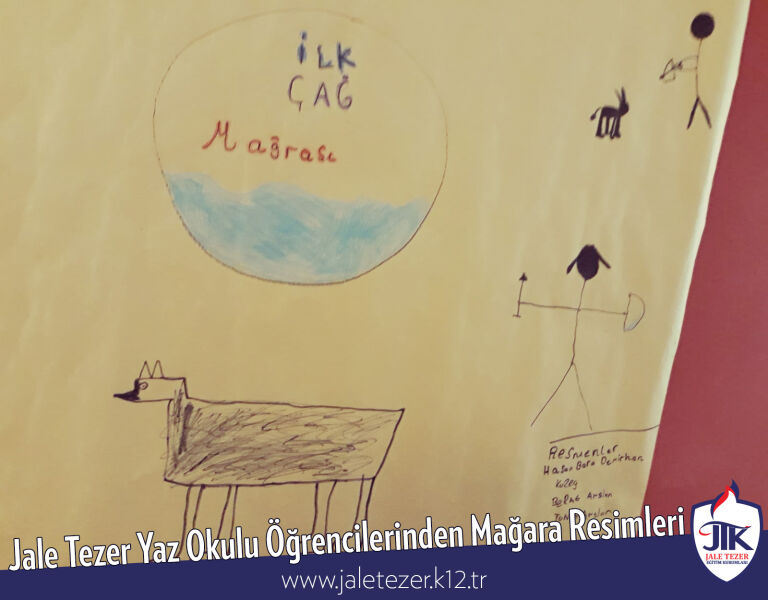 İLK
ÇAĞ
Mağrası
Resmenler
Hasan Bora Derichan
Kuzey
Arslan
Jale Tezer Yaz Okulu Öğrencilerinden Mağara Resimleri
JTK
JALE TEZER
EĞİTİM KURUMLARI
www.jaletezer.k12.tr